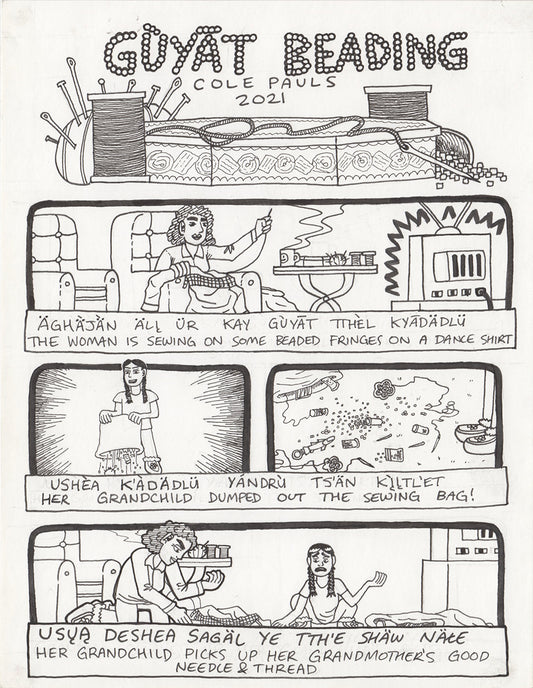 GÙYĀT BEADING
COLE PAULS
2021
ÄGHÀJÀN ÄŁĮ ÜR KAY GÙYĀT TTHÈL KYÄDÄDLÜ
THE WOMAN IS SEWING ON SOME BEADED FRINGES ON A DANCE SHIRT
USHÈA K'ÀDÀDLÜ YÁNDRÙ TS'ÄN KÌĮTL'ET
HER GRANDCHILD DUMPED OUT THE SEWING BAG!
USŲĄ DESHEA SAGÄL YE TTH'E SHÄW NÀŁE
HER GRANDCHILD PICKS UP HER GRANDMOTHER'S GOOD
NEEDLE & THREAD